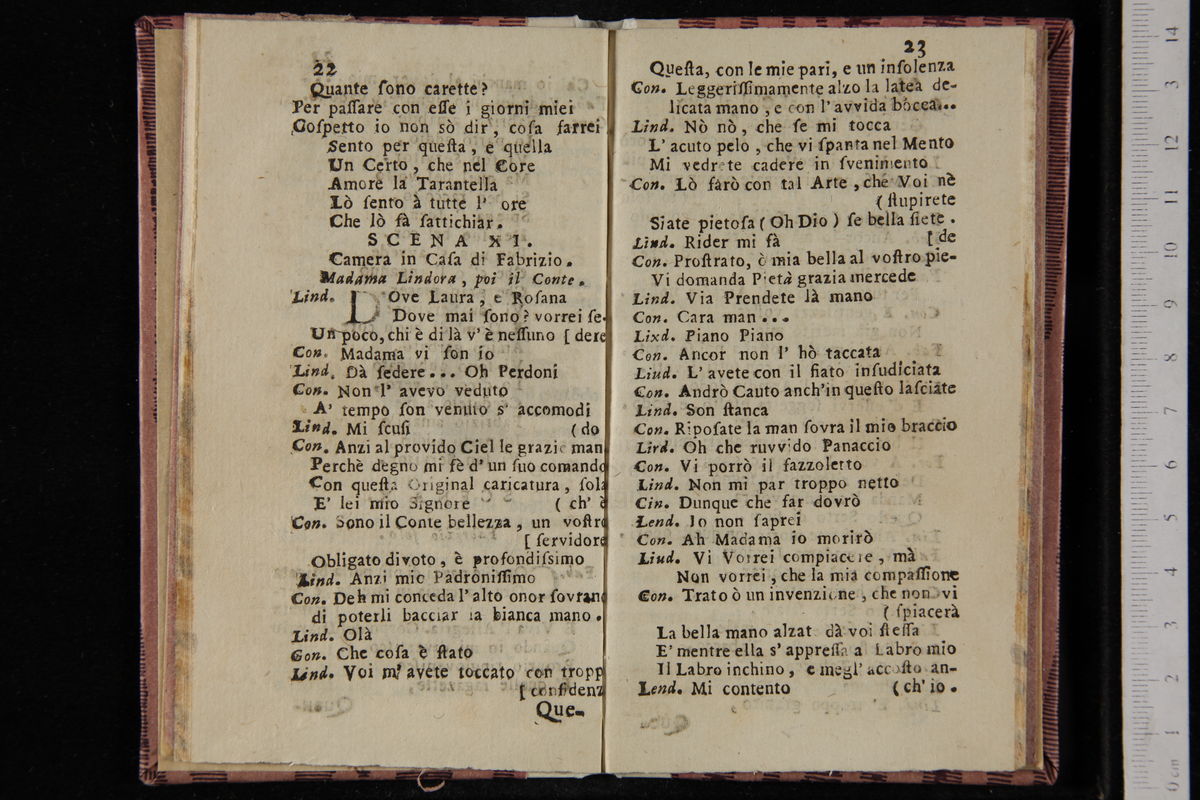 22
Quante ſono carette?
Per paſſare con eſſe i giorni miei
Coſpetto io non sò dir', coſa farrei
Sento per queſta, e quella
Un Certo, che nel Core
Amore la Tarantella
Lò ſento à tutte l' ore
Che lò fà fattichiar.
SCENA XI.
Camera in Caſa di Fabrizio.
Madama Lindora, poi il Conte.
Lind. DOve Laura, e Roſana
Dove mai ſono? vorrei ſe-
Un poco, chi è di là v' è neſſuno [ dere
Con. Madama vi ſon io
Lind. Dà ſedere... Oh Perdoni
Con. Non l' avevo veduto
A' tempo ſon venuto s' accomodi
Lind. Mi ſcuſi ( do
Con. Anzi al provido Ciel le grazie man
Perchè degno mi fè d' un ſuo comando
Con queſta Original caricatura, ſola
E' lei mio Signore ( ch' è
Con. Sono il Conte bellezza, un voſtro
[ ſervidore
Obligato divoto, è profondiſsimo
Lind. Anzi mio Padroniſſimo
Con. Deh mi conceda l' alto onor ſovrano
di poterli bacciar la bianca mano.
Lind. Olà
Con. Che coſa è ſtato
Lind. Voi m' avete toccato con tropp
[ confidenz
Que-
23
Queſta, con le mie pari, e un inſolenza
Con. Leggeriſſimamente alzo la latea de-
licata mano, e con l' avvida bocca...
Lind. Nò nò, che ſe mi tocca
L' acuto pelo, che vi ſpanta nel Mento
Mi vedrete cadere in ſvenimento
Con. Lò farò con tal Arte, che Voi nè
( ſtupirete
Siate pietoſa ( Oh Dio ) ſe bella ſiete.
Lind. Rider mi fà [ de
Con. Proſtrato, ò mia bella al voſtro pie-
Vi domanda Pietà grazia mercede
Lind. Via Prendete là mano
Con. Cara man...
Lixd. Piano Piano
Con. Ancor non l' hò taccata
Liud. L' avete con il fiato inſudiciata
Con. Andrò Cauto anch'in queſto laſciate
Lind. Son ſtanca
Con. Ripoſate la man ſovra il mio braccio
Lird. Oh che ruvvido Panaccio
Con. Vi porrò il fazzoletto
Lind. Non mi par troppo netto
Cin. Dunque che far dovrò
Lend. Io non ſaprei
Con. Ah Madama io morirò
Liud. Vi Vorrei compiacere, mà
Non vorrei, che la mia compaſſione
Con. Trato ò un invenzione, che non vi
( ſpiacerà
La bella mano alzat dà voi ſteſſa
E' mentre ella s' appreſſa al Labro mio
Il Labro inchino, e megl' accoſto an-
Lend. Mi contento ( ch' io.